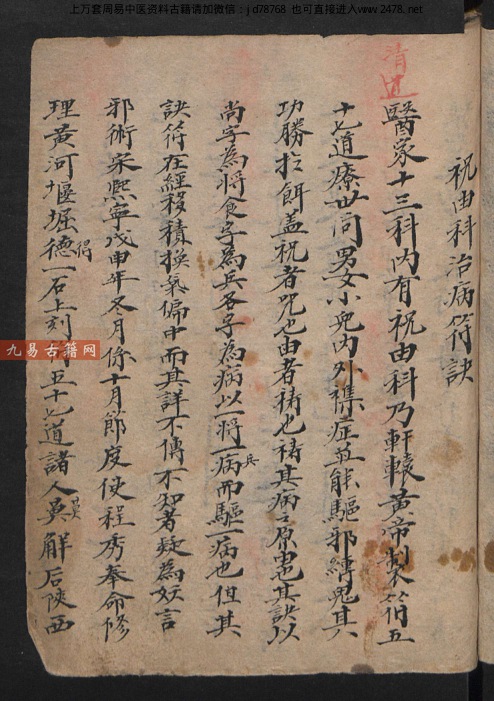 上万套周易中医资料古籍请加微信：jd78768 也可直接进入www.2478.net
祝由科治病符訣
醫家十三科內有祝由科乃軒轅黃帝製符五
十七道療世间男女小兒內外襍症並能驅邪縛鬼其
功勝扵餌盖祝者咒也由者禱也禱其病之原鬼其訣以
尚字為將食字為兵各字為病以一將一兵病而驅一病也但其
訣符在經移積換氣偏中而其詳不傳不知者疑為妖言
邪術宋熙寧戊申年冬月份十月節度使程秀奉命修
理黃河堰堀德得一石上刻符五十七道諸人莫莫解后陝西
清
九易古籍网